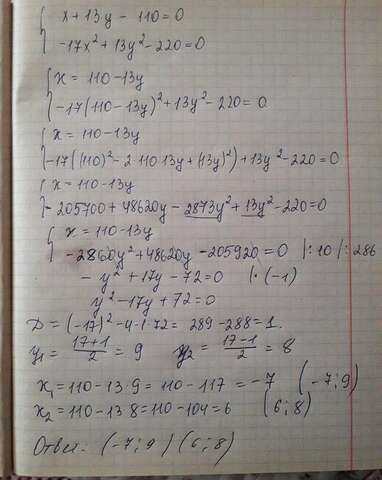 { x + 13y - 110 = 0
-17x² + 13y² - 220 = 0
{ x = 110 - 13y
-17(110 - 13y)² + 13y² - 220 = 0
{ x = 110 - 13y
-17(110)² - 2·110·13y + (13y)²) + 13y² - 220 = 0
{ x = 110 - 13y
-205700 + 48620y - 2873y² + 13y² - 220 = 0
{ x = 110 - 13y
-2860y² + 48620y - 205920 = 0 |:10 |:286
- y² + 17y - 72 = 0 |·(-1)
y² - 17y + 72 = 0
D = (-17)² - 4·1·72 = 289 - 288 = 1.
y₁ = (17+1)/2 = 9 y₂ = (17-1)/2 = 8
x₁ = 110 - 13·9 = 110 - 117 = -7 (-7; 9)
x₂ = 110 - 13·8 = 110 - 104 = 6 (6; 8)
Ответ: (-7; 9) (6; 8)